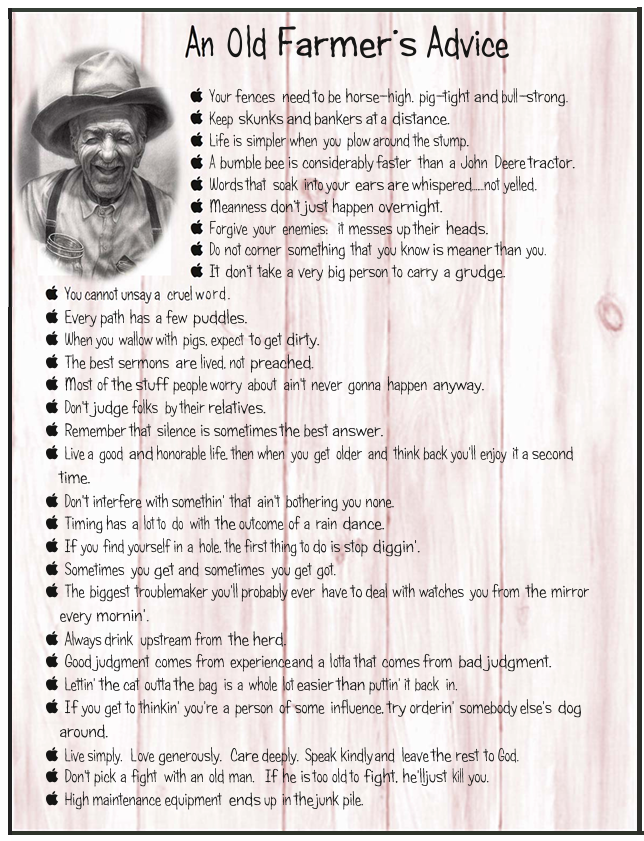 An Old Farmer's Advice
Your fences need to be horse-high, pig-tight and bull-strong.
Keep skunks and bankers at a distance.
Life is simpler when you plow around the stump.
A bumble bee is considerably faster than a John Deere tractor.
Words that soak into your ears are whispered.....not yelled.
Meanness don't just happen overnight.
Forgive your enemies; it messes up their heads.
Do not corner something that you know is meaner than you.
It don't take a very big person to carry a grudge.
You cannot unsay a cruel word.
Every path has a few puddles.
When you wallow with pigs, expect to get dirty.
The best sermons are lived, not preached.
Most of the stuff people worry about ain't never gonna happen anyway.
Don't judge folks by their relatives.
Remember that silence is sometimes the best answer.
Live a good and honorable life, then when you get older and think back you'll enjoy it a second
time.
Don't interfere with somethin' that ain't bothering you none.
Timing has a lot to do with the outcome of a rain dance.
If you find yourself in a hole, the first thing to do is stop diggin'.
Sometimes you get and sometimes you get got.
The biggest troublemaker you'll probably ever have to deal with watches you from the mirror
every mornin'.
Always drink upstream from the herd.
Good judgment comes from experience and a lotta that comes from bad judgment.
Lettin' the cat outta the bag is a whole lot easier than puttin' it back in.
If you get to thinkin' you're a person of some influence, try orderin' somebody else's dog
around.
Live simply. Love generously. Care deeply. Speak kindly and leave the rest to God.
Don't pick a fight with an old man. If he is too old to fight, he'll just kill you.
High maintenance equipment ends up in the junk pile.